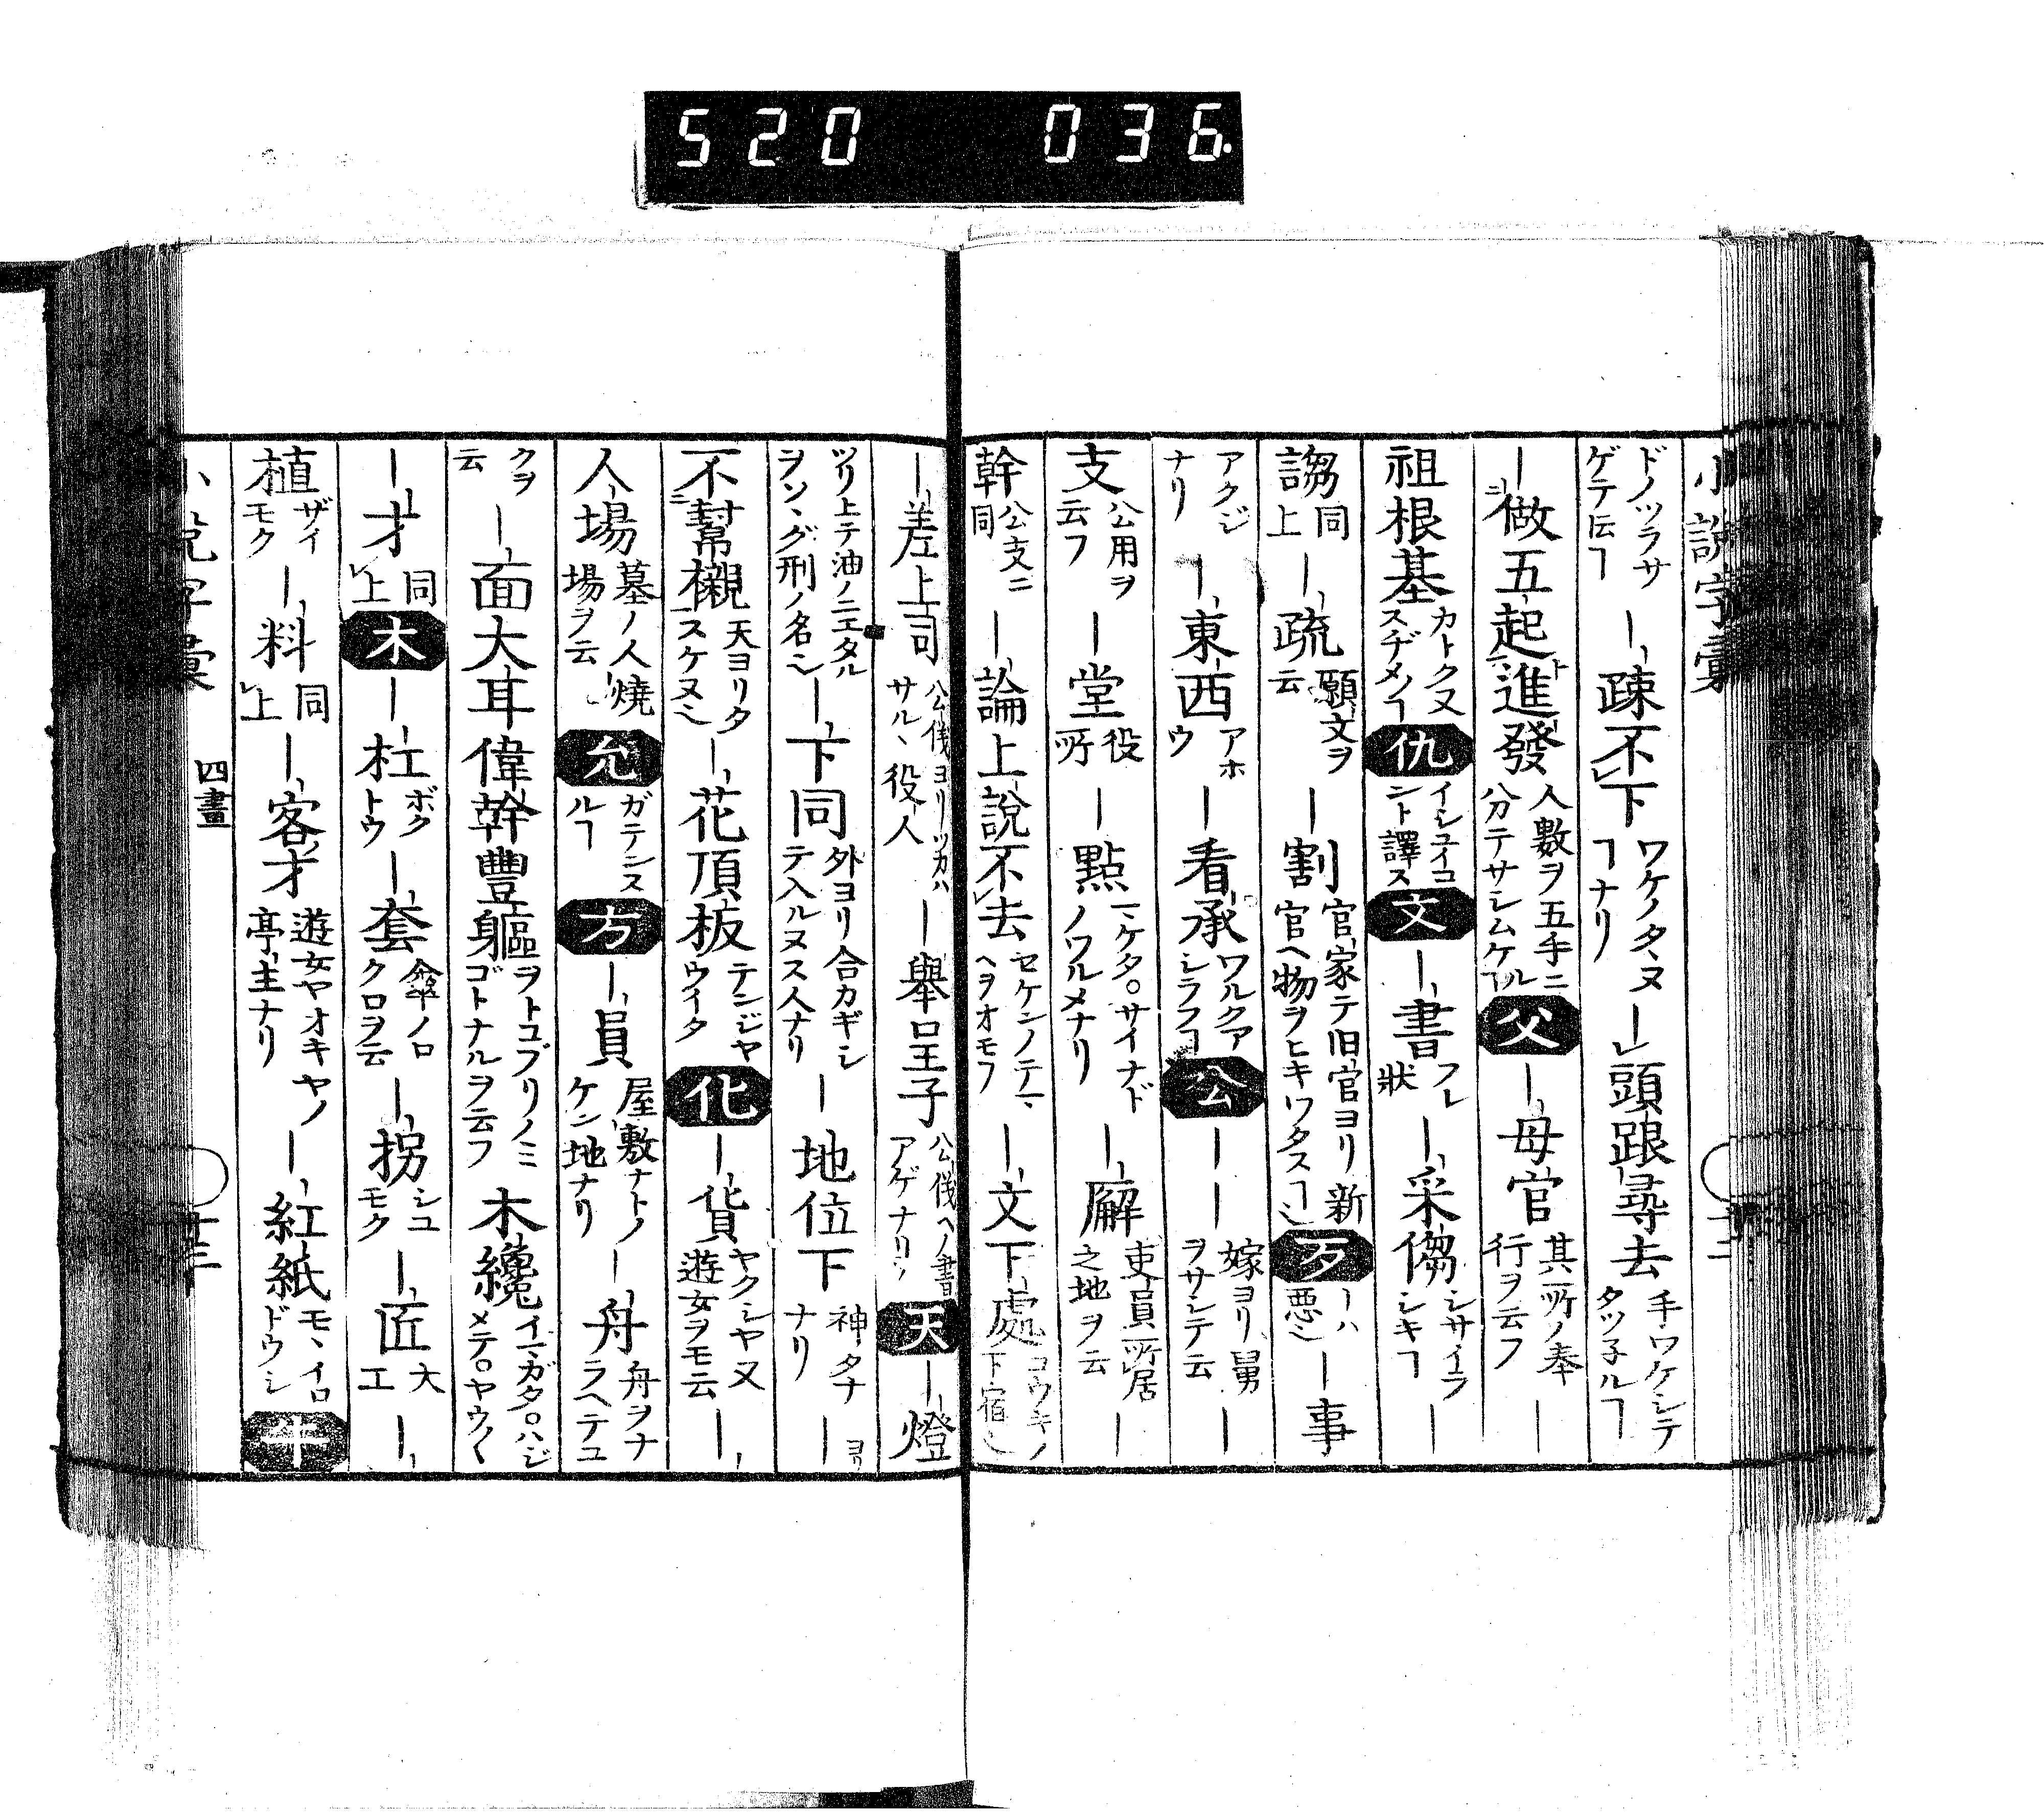 520 036
小説字彙
ドノツラサゲテ伝ヿ ｜疎不下 ワケノタヽヌヿナリ ｜頭跟尋去 手ワケシテタツ子ルヿ
｜做五起進發 人數ヲ五手ニ八分テサシムケルヿ 父 ｜母官 其所ノ奉行ヲ云フ ｜
祖根基 カトク又スヂメノヿ 仇 イシユイコント譯ス 文 ｜書 フレ狀 ｜采㑳 シサイラシキヿ ｜
謅 同上 ｜疏 願文ヲ云 ｜割 官家テ旧官ヨリ新官ヘ物ヲヒキワタスヿ 歹 ｜ハ悪シ ｜事
アクジナリ ｜東西 アホウ ｜看承 ワルクアシラフヿ 公 ｜｜ 嫁ヨリ舅ヲサシテ云 ｜
支 公用ヲ云フ ｜堂 役所 ｜點 一ケタ。サイナドノワルメナリ ｜廨 吏員所居之地ヲ云 ｜
幹 公支ニ同 ｜論上說不去 セケンノテマヘヲオモフ ｜文下處 コウキノ下宿
｜差上司 公儀ヨリツカハサルヽ役人 ｜舉呈子 公儀ヘノ書アゲナリ 天 ｜燈
ツリ上テ油ノニエタルヲソヽグ刑ノ名 ｜下同 外ヨリ合カギシテ入ルヌス人ナリ ｜地位下 神タナナリ ｜
不幫襯 天ヨリタスケヌ ｜花頂板 テンジヤウイタ 化 ｜貨 ヤクシヤ又遊女ヲモ云 ｜
人場 墓ノ人燒場ヲ云 允 ガテンスルヿ 方 ｜員 屋敷ナトノケン地ナリ ｜舟 舟ヲナラヘテユ
クヲ云 ｜面大耳偉幹豐軀 ヲトコブリノミゴトナルヲ云フ 木纔 イマガタ。ハジメテ。ヤウ〱
｜才 同上 木 ｜杠 ボクトウ ｜套 傘ノロクロヲ云 ｜拐 シユモク ｜匠 大工 ｜
植 ザイモク ｜料 同上 ｜客才 遊女ヤオキヤノ亭主ナリ ｜紅紙 モヽイロドウシ 牛
小説字彙 四畫